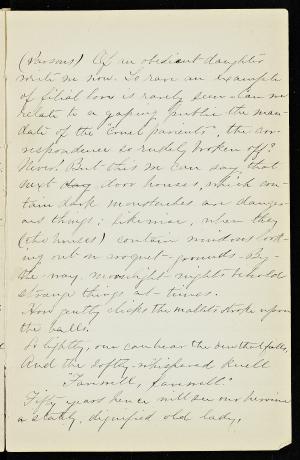 (Parsons) Of an obedient daughter
write we now. So rare an example
of filial love is rarely seen. Can we
relate to a gaping public the man-
date of the "cruel parents", the cor-
respondence so rudely broken off?
Never! But this we can say, that
next day door houses, which con-
tain dark moustaches are danger-
ous things; likewise, when they
(the houses) contain windows look-
ing out on croquet-grounds. By-
the-way, moonlight nights behold
strange things at times.
Now gently clicks the mallets stroke upon
the balls.
So lightly, one can hear the dew that falls,
And the softly-whispered knell
"Farewell, farewell."
Fifty years hence will see our heroine
a stately, dignified old lady,